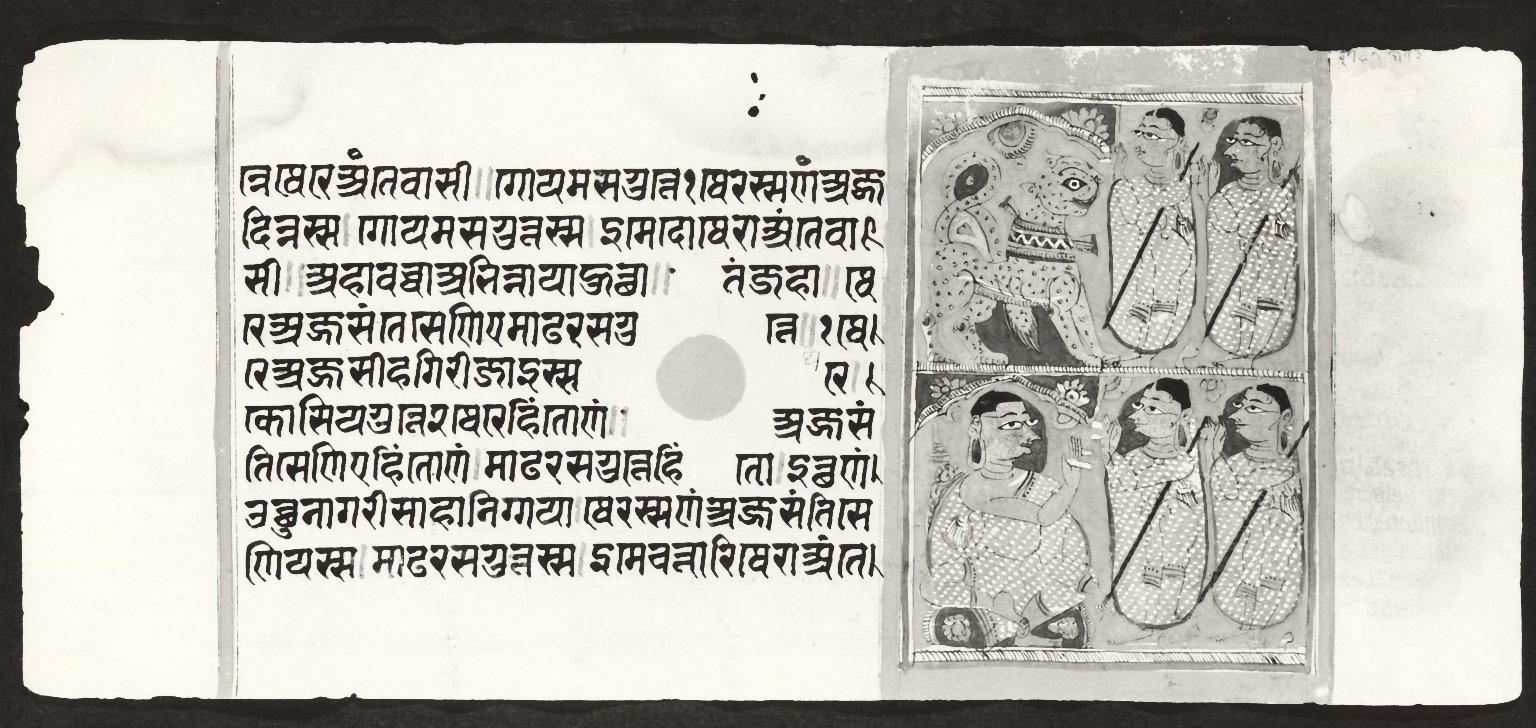 त्ते थेरे अंतेवासी ॥ गोयमसगुत्ते १ थेरस्स णं अज्ज
दिन्नस्स । गोयमसगुत्तस्स । इमे दो थेरा अंतेवा
सी ॥ अहावच्चा अभिन्नाया हुत्था ॥ तं जहा ॥ थे
रे अज्जसंतिसेणिए माढरसगु त्ते ॥ १ थे
रे अज्जसीहगिरी जाइस्स रे ।
कोसियगुत्ते २ थेरेहिंतो णं ॥ अज्जसं
तिसेणिएहिंतो णं । माढरसगुत्तेहिं तो । इत्थ णं
उच्चनागरी साहा निग्गया । थेरस्स णं अज्जसंतिसे
णियस्स । माढरसगुत्तस्स । इमे चत्तारि थेरा अंते